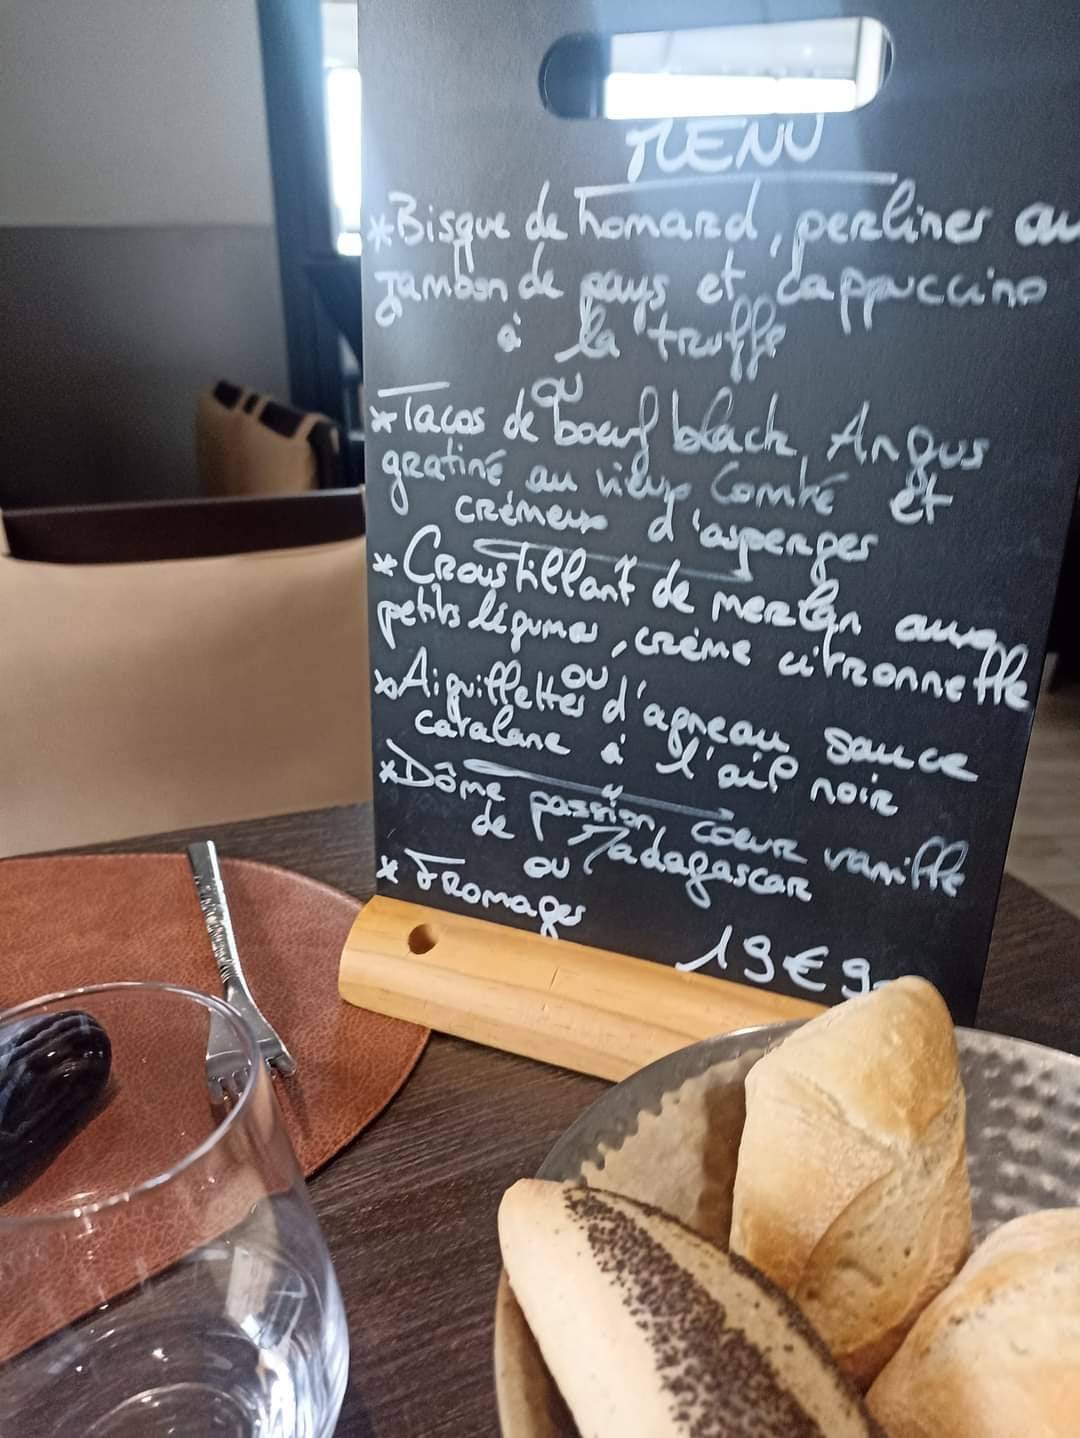 MENU
* Bisque de homard, perlines au
jambon de pays et cappuccino
à la truffe
ou
* Tacos de boeuf black Angus
gratiné au vieux Comté et
crémeux d'asperges
* Croustillant de merlan aux
petits légumes, crème citronnelle
ou
* Aiguillettes d'agneau sauce
catalane à l'ail noir
* Dôme passion, coeur vanille
de Madagascar
ou
* Fromages
19€9